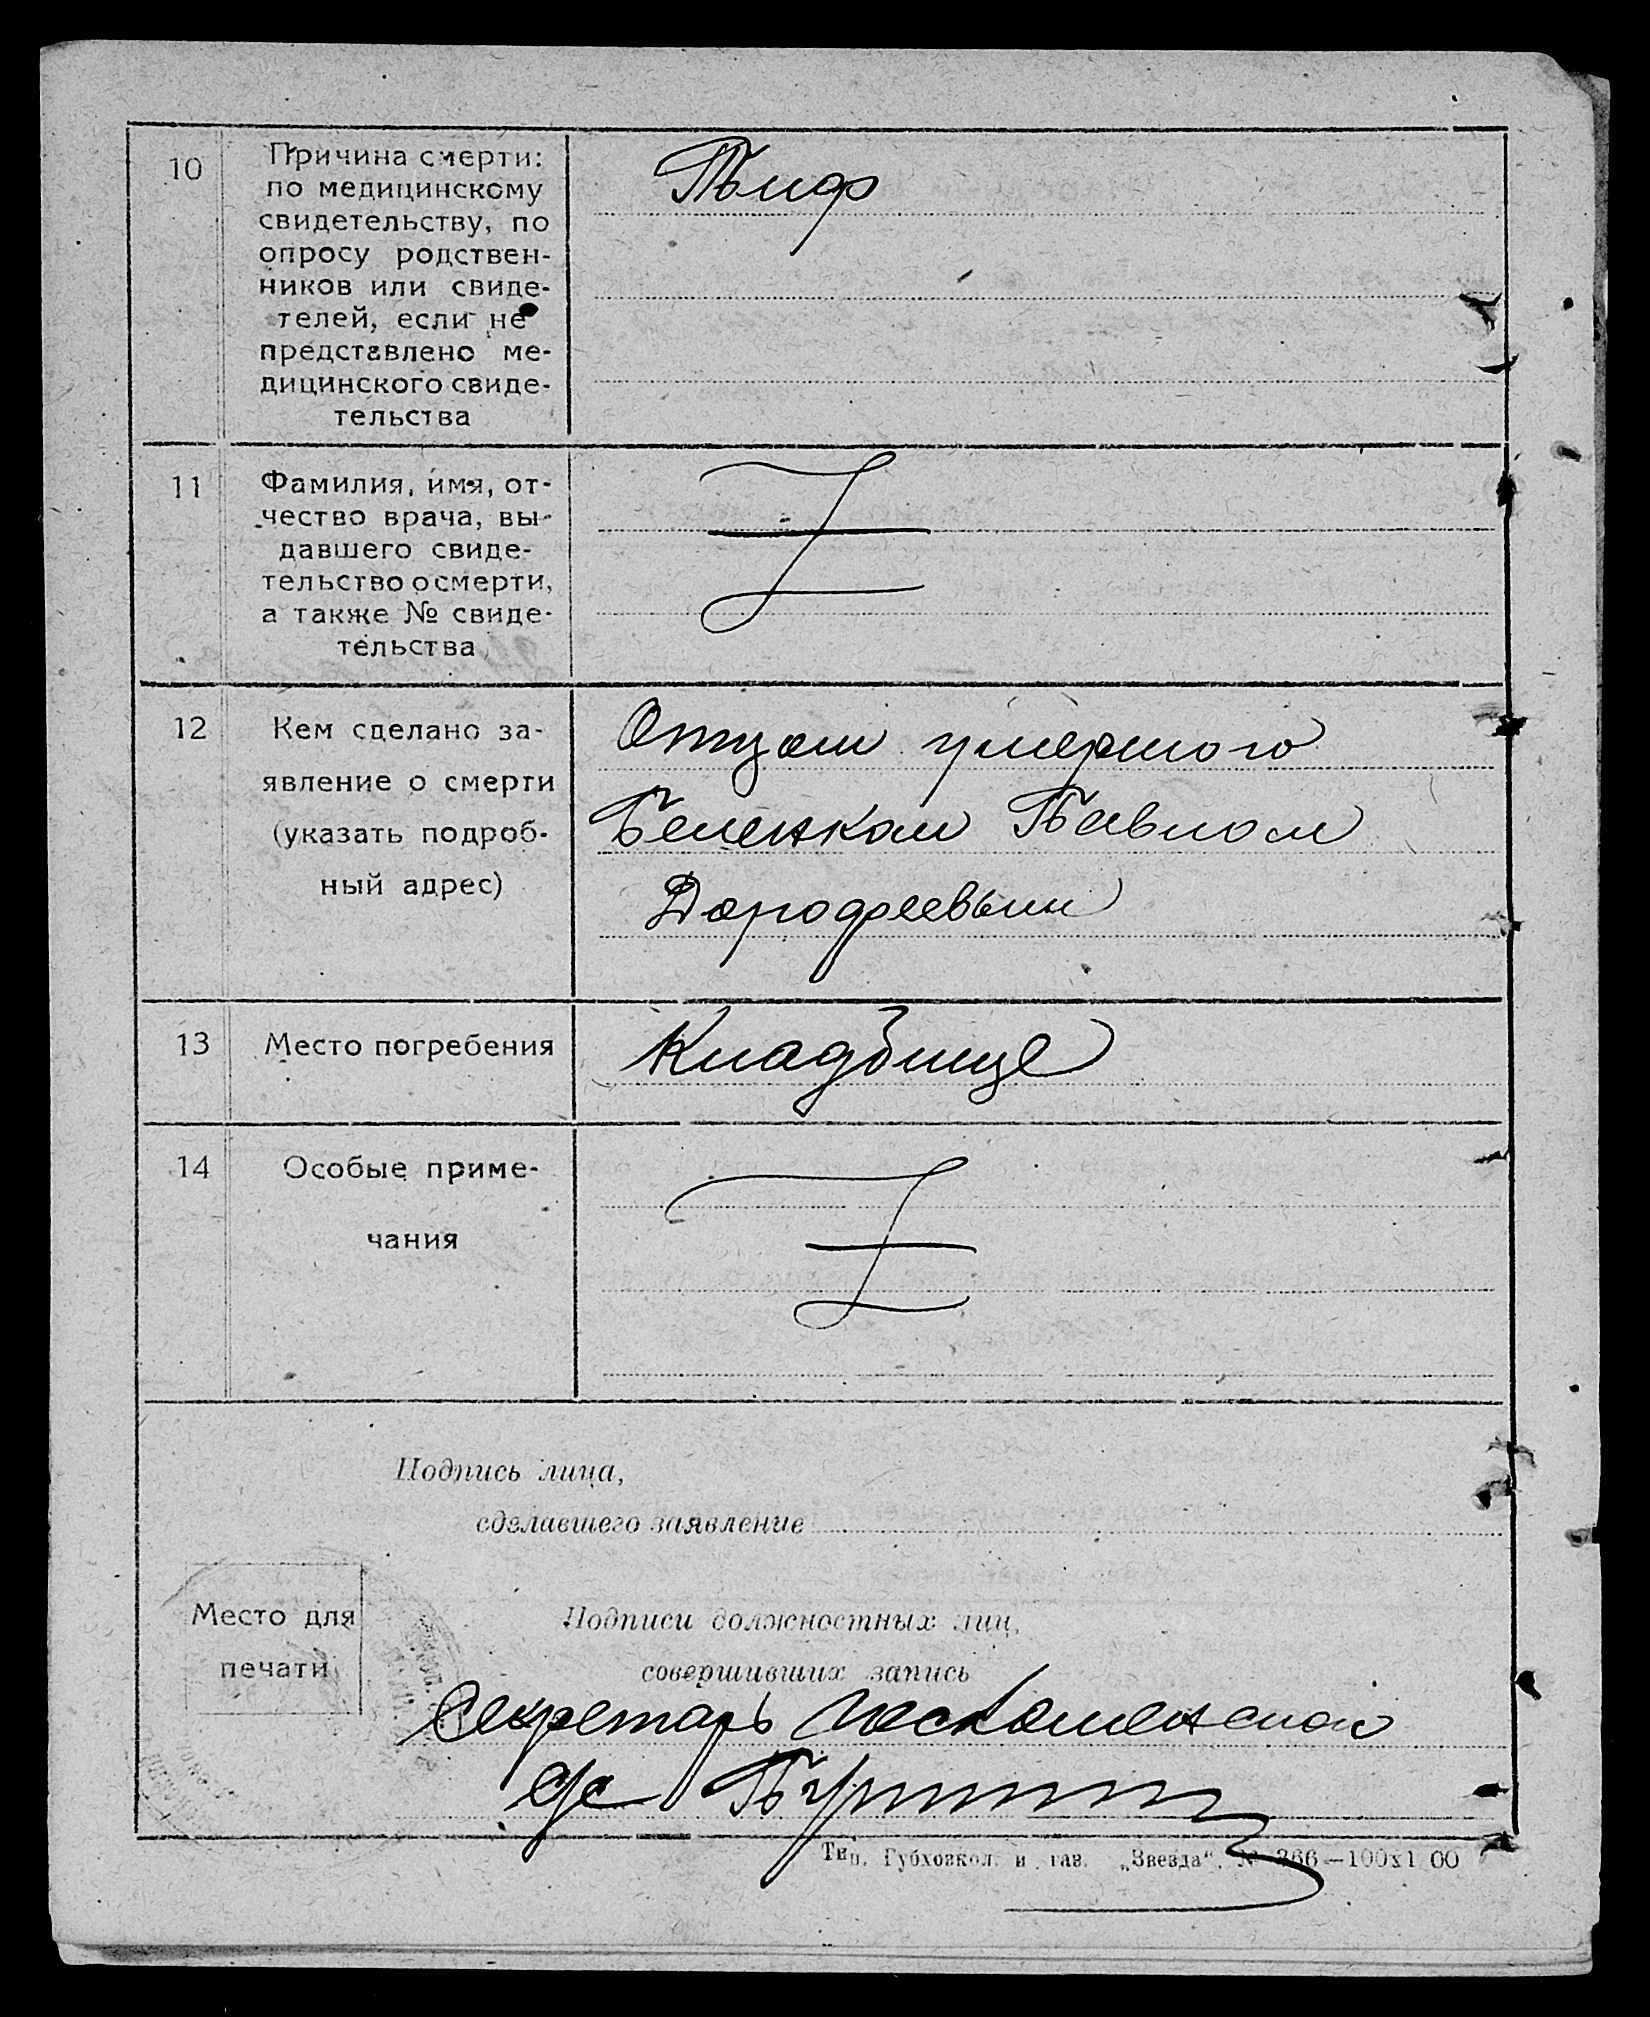 10
Причина смерти:
по медицинскому
свидетельству, по
опросу родствен-
ников или свиде-
телей, если не
представлено ме-
дицинского свиде-
тельства
Тиф
11
Фамилия, имя, от-
чество врача, вы-
давшего свиде-
тельство о смерти,
а также № свиде-
тельства
12
Кем сделано за-
явление о смерти
(указать подроб-
ный адрес)
Отцом умершого
Беленком Павлом
Дорофеевым
13
Место погребения
Кладбище
14
Особые приме-
чания
Подпись лица,
сделавшего заявление
Место для
печати
Подписи должностных лиц,
совершивших запись
Секретарь
с/с
Тип. Губхозкол. и газ. „Звезда“. № 366—100х1 00